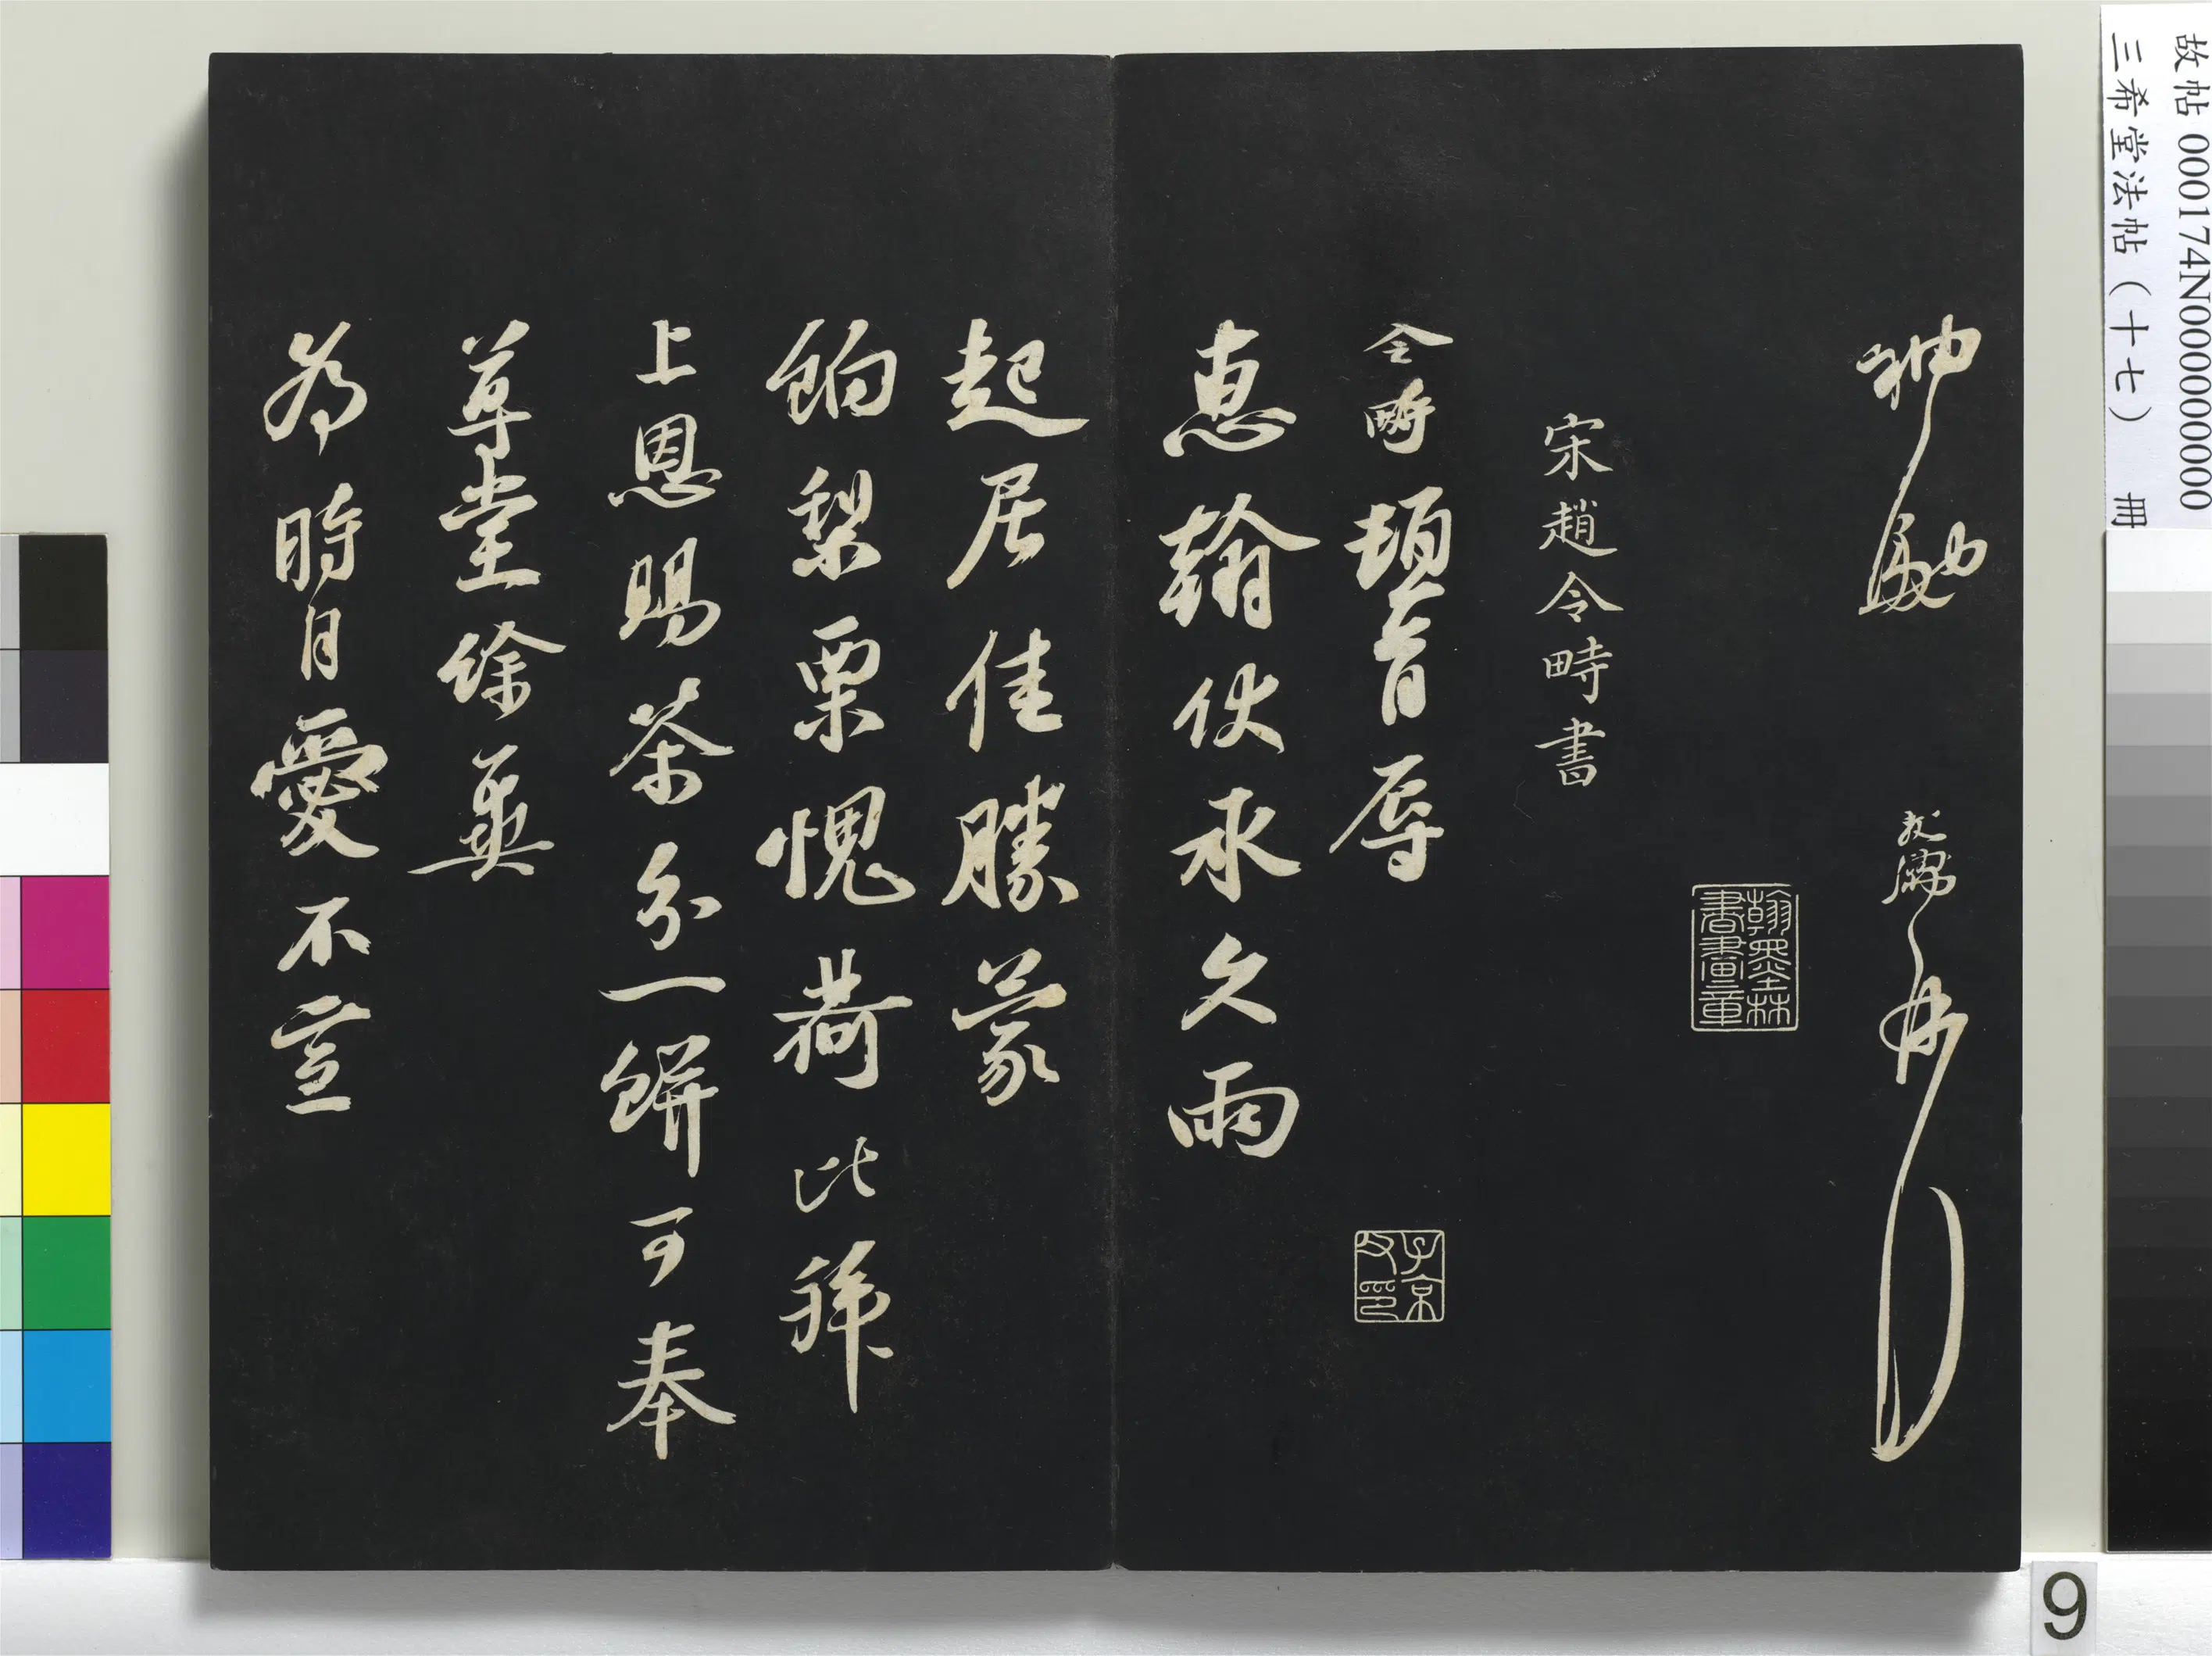 故帖000174N000000000
三希堂法帖(十七) 冊
翰墨林
書畫章
宋趙令畤書
令畤頓首辱
子京
父印
惠翰伏承久雨
起居佳勝蒙
餉梨栗愧荷比拜
上恩賜茶分一餅可奉
尊堂餘冀
為時自愛不宣
9